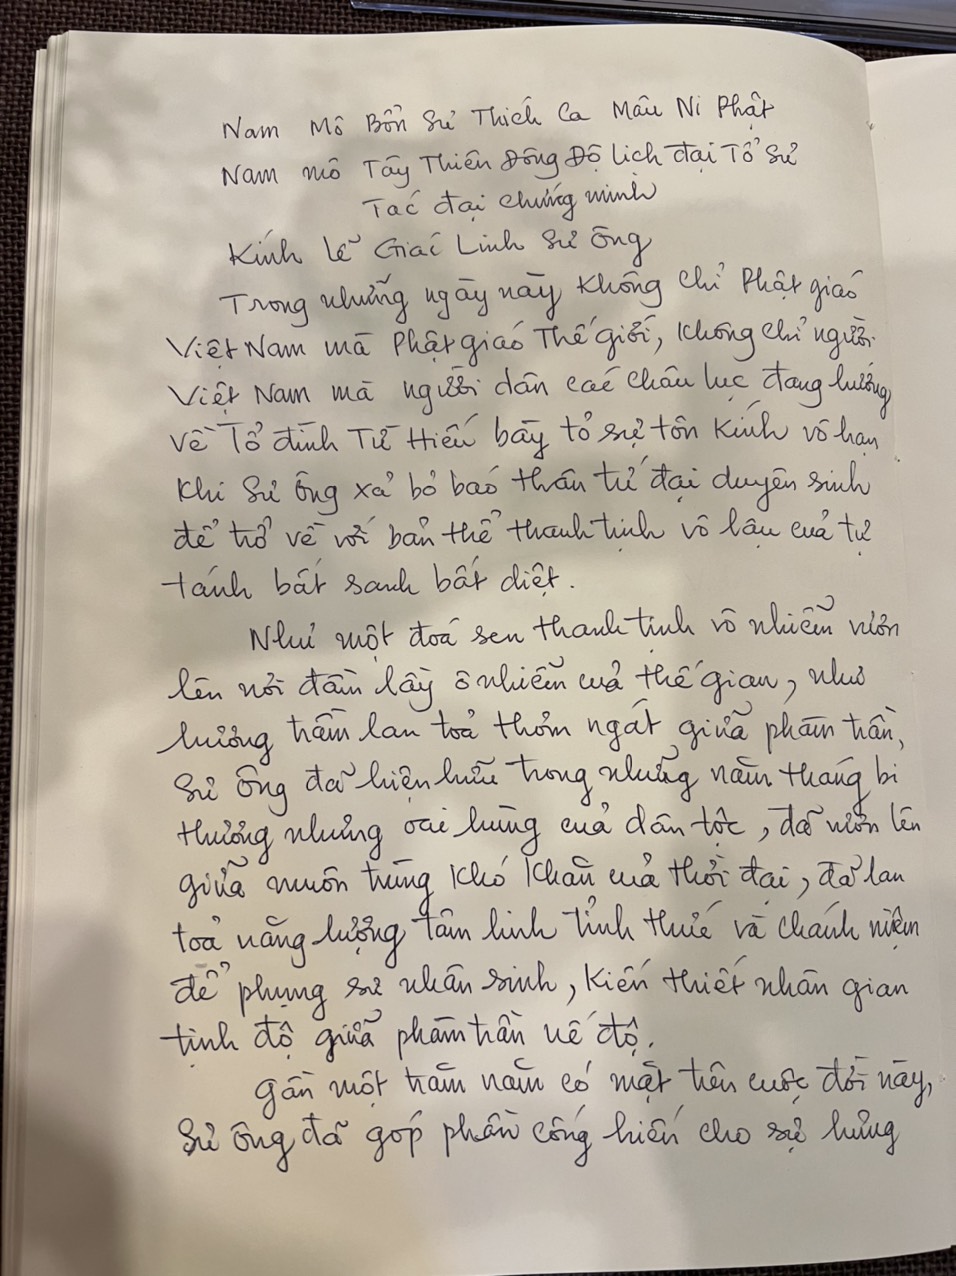 Nam Mô Bổn Sư Thích Ca Mâu Ni Phật
Nam mô Tây Thiên Đông Độ lịch đại Tổ Sư
Tác đại chứng minh
Kính lễ Giác Linh Sư Ông
Trong những ngày này không chỉ Phật giáo
Việt Nam mà Phật giáo Thế giới, không chỉ người
Việt Nam mà người dân các châu lục đang hướng
về Tổ đình Từ Hiếu bày tỏ sự tôn kính vô hạn
khi Sư Ông xả bỏ báo thân tứ đại duyên sinh
để trở về với bản thể thanh tịnh vô lậu của tự
tánh bất sanh bất diệt.
Như một đoá sen thanh tịnh vô nhiễm vươn
lên nơi đầm lầy ô nhiễm của thế gian, như
hương trầm lan toả thơm ngát giữa phàm trần,
Sư Ông đã hiện hữu trong những năm tháng bi
thương nhưng oai hùng của dân tộc, đã vươn lên
giữa muôn trùng khó khăn của thời đại, đã lan
toả năng lượng tâm linh tỉnh thức và chánh niệm
để phụng sự nhân sinh, kiến thiết nhân gian
tịnh độ giữa phàm trần uế độ.
Gần một trăm năm có mặt trên cuộc đời này,
Sư Ông đã góp phần cống hiến cho sự hưng